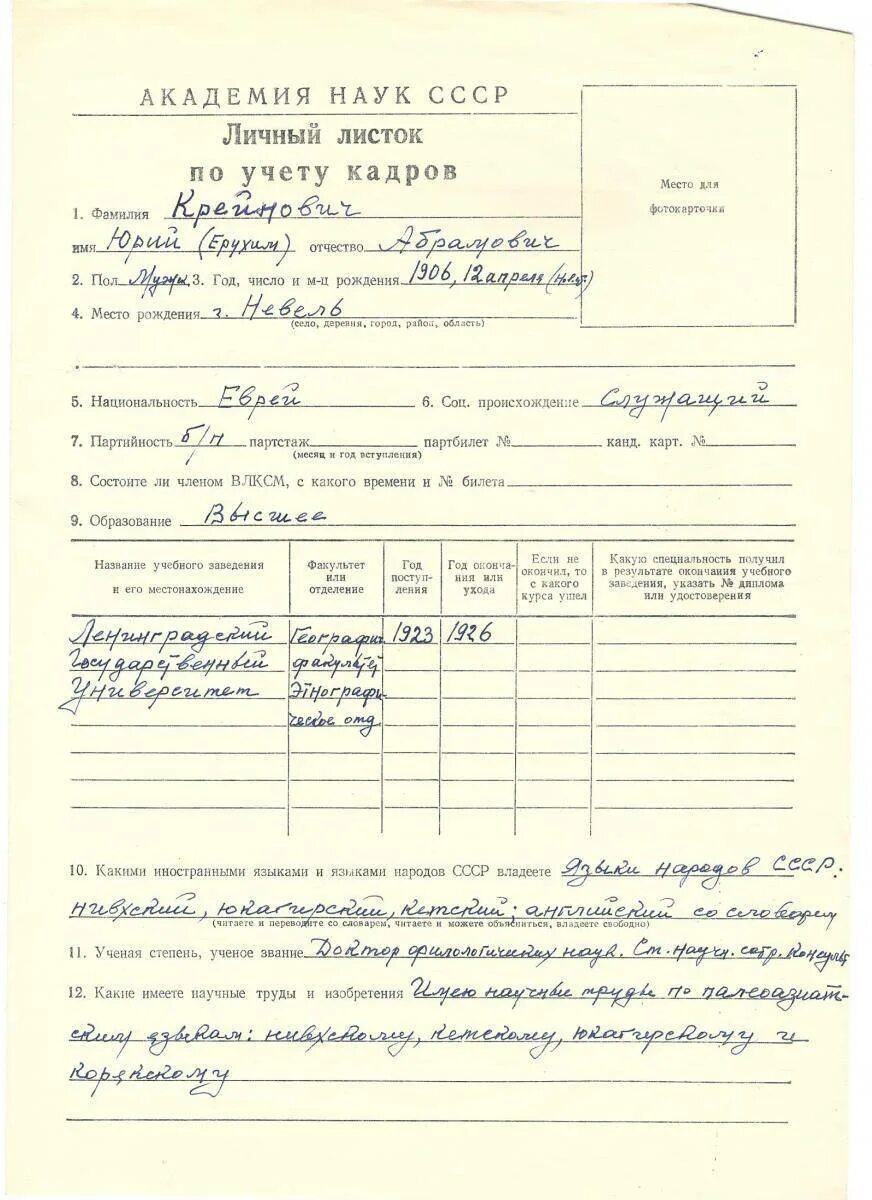 АКАДЕМИЯ НАУК СССР
Личный листок
по учету кадров
Место для
фотокарточки
1. Фамилия Крейнович
имя Юрий (Ерухим) отчество Абрамович
2. Пол Мужск. 3. Год, число и м-ц рождения 1906, 12 апреля
4. Место рождения г. Невель
(село, деревня, город, район, область)
5. Национальность Еврей 6. Соц. происхождение Служащий
7. Партийность б/п партстаж партбилет № канд. карт. №
(месяц и год вступления)
8. Состоите ли членом ВЛКСМ, с какого времени и № билета
9. Образование Высшее
Название учебного заведения и его местонахождение Факультет или отделение Год поступ- ления Год оконча- ния или ухода Если не окончил, то с какого курса ушел Какую специальность получил в результате окончания учебного заведения, указать № диплома или удостоверения
Ленинградский Географич. 1923 1926
Государственный факультет
Университет Этнографи-
ческое отд.
10. Какими иностранными языками и языками народов СССР владеете Языки народов СССР:
нивхский, юкагирский, кетский; английский со словарем
(читаете и переводите со словарем, читаете и можете объясниться, владеете свободно)
11. Ученая степень, ученое звание Доктор филологических наук. Ст. научн. сотр. Консульт
12. Какие имеете научные труды и изобретения Имею научные труды по палеоазиат-
ским языкам: нивхскому, кетскому, юкагирскому и
корякскому